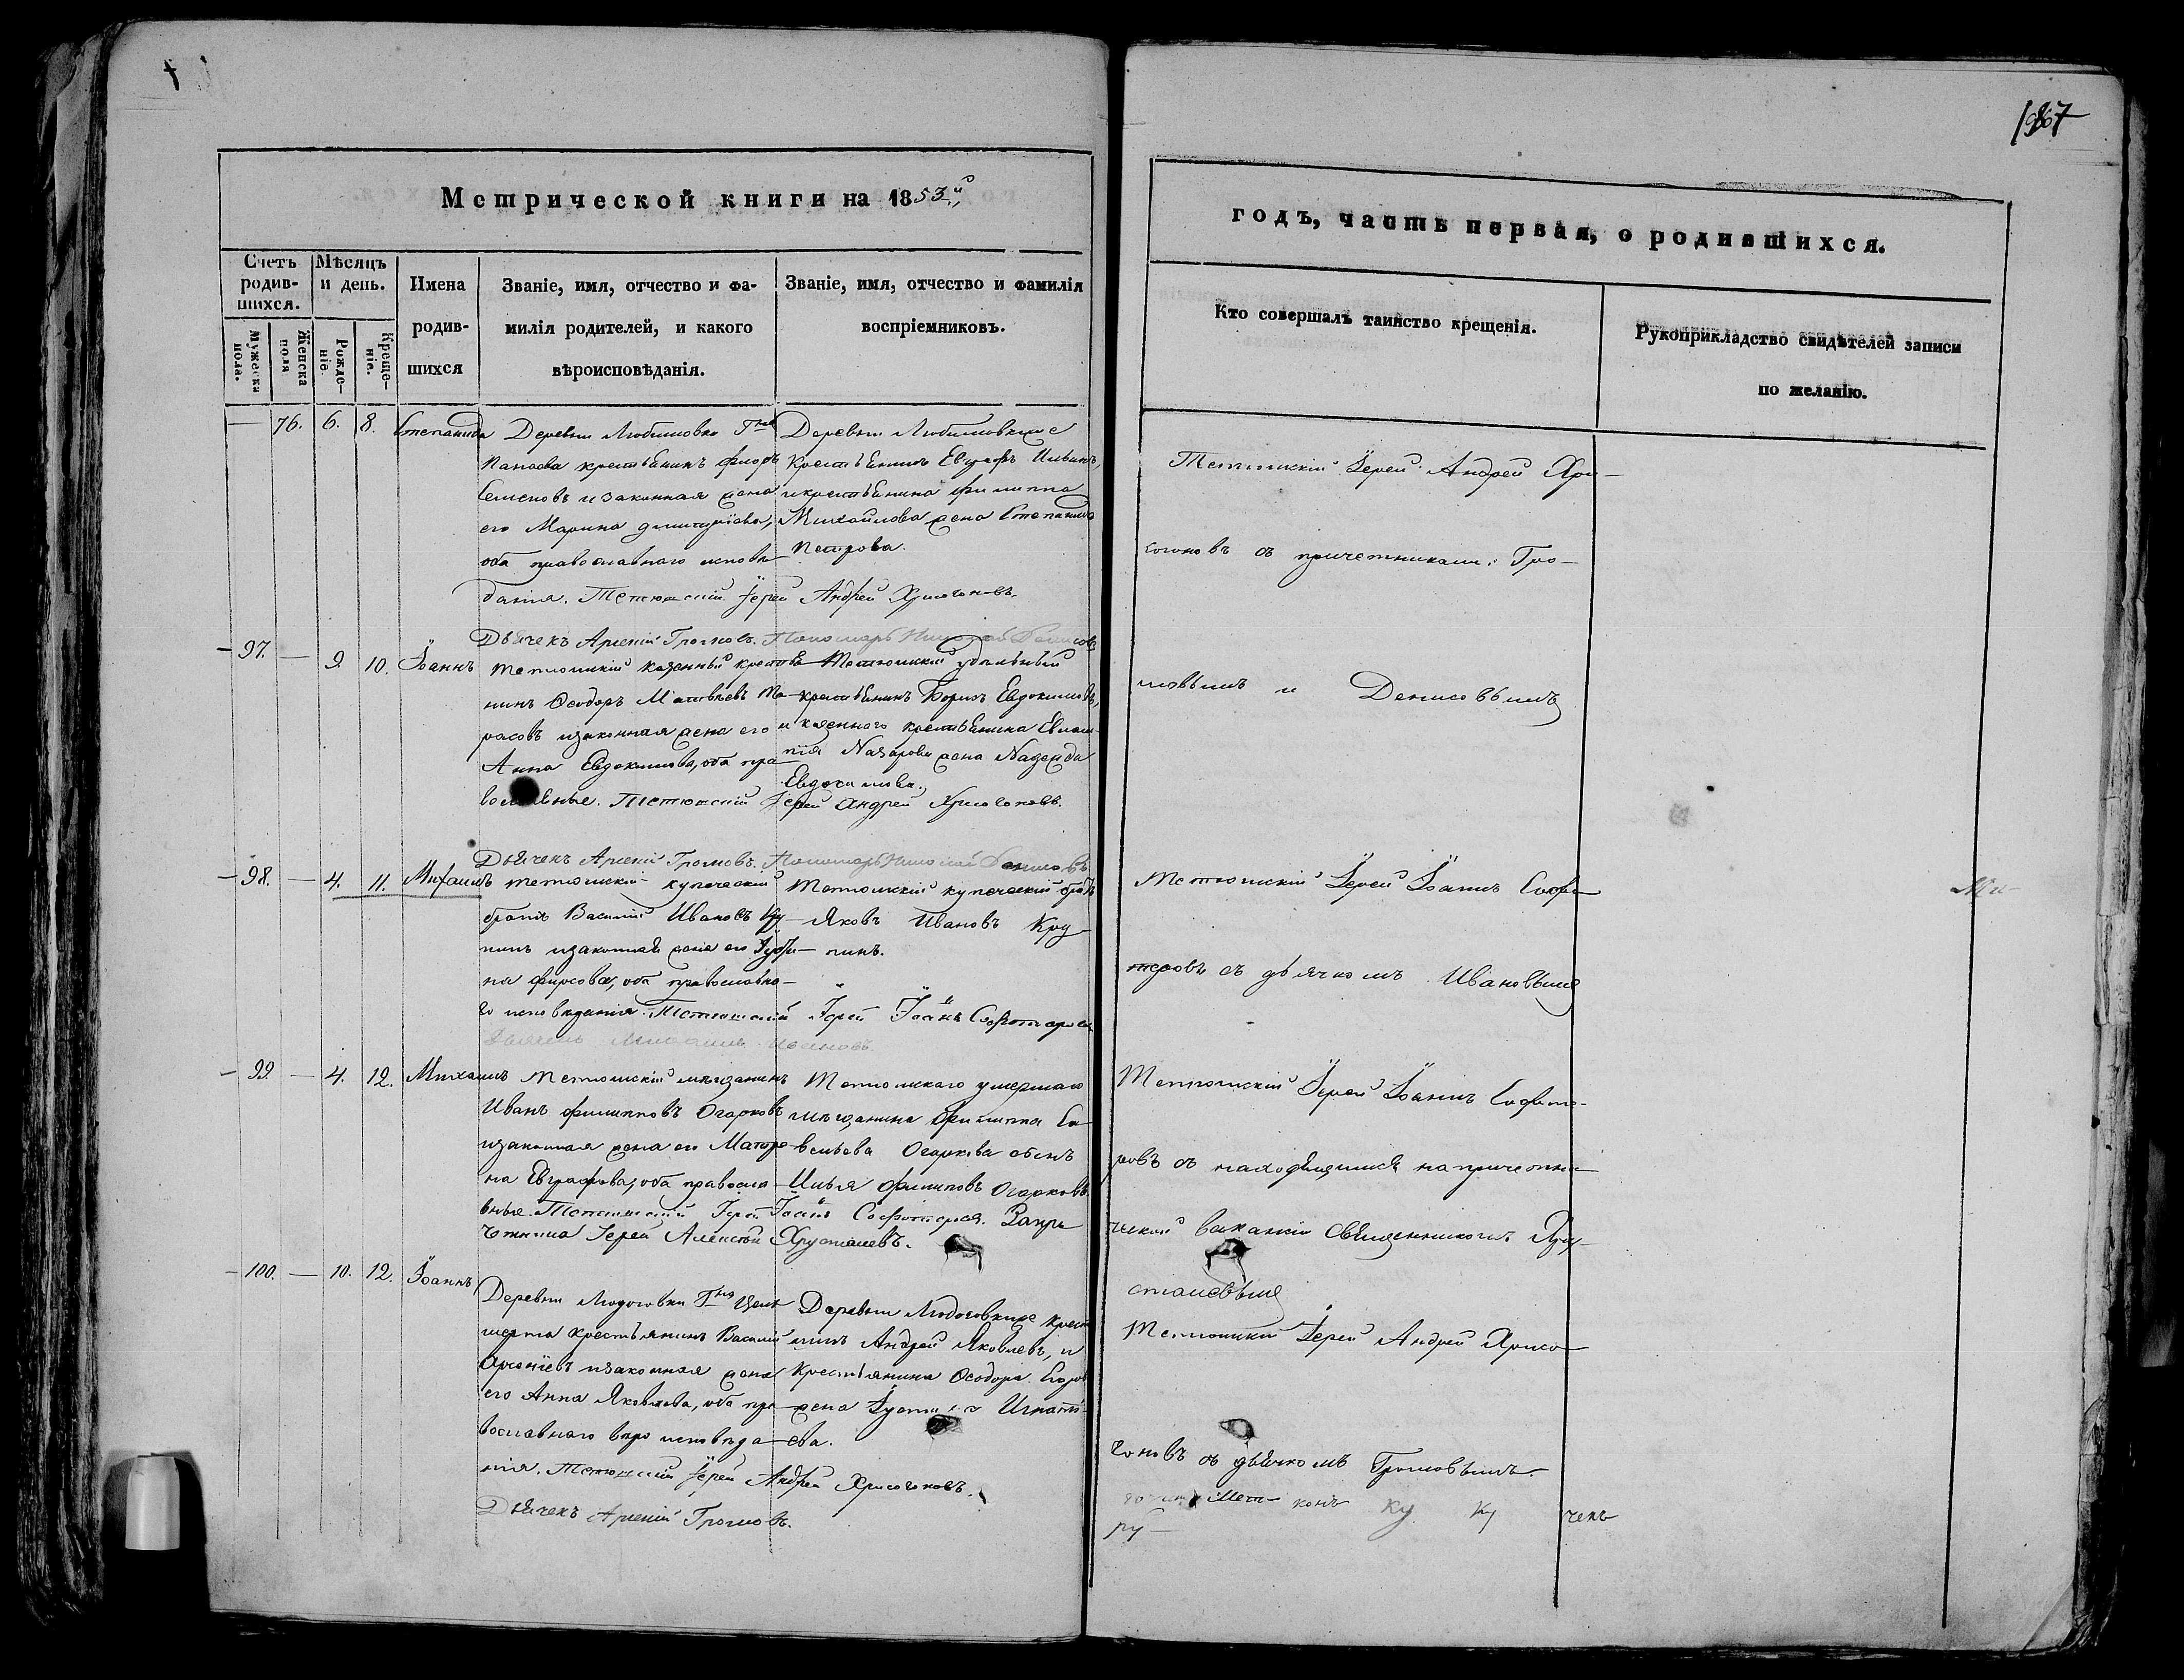 1867
Метрической книги на 1853й
Счетъ родив-шихся.
Мужеска пола.
Женска пола
Мѣсяцъ и день.
Рожде-ніе.
Креще-ніе.
Имена
родив-
шихся
Званіе, имя, отчество и фа-
милія родителей, и какого
вѣроисповѣданія.
Званіе, имя, отчество и фамилія
воспріемниковъ.
— 76. 6. 8. Степанида
Деревни Любимовки Гна
Панаева крестьянинъ Флоръ
Семеновъ и законная жена
его Марина Димитріева,
оба православнаго исповѣ-
данія. Тетюшскій Іерей Андрей Хрисогоновъ.
Дьячекъ Арсеній Громовъ. Пономарь Николай Денисовъ
Деревни Любимовкиже
крестьянинъ Евграфъ Ильинъ,
и крестьянина Филиппа
Михайлова жена Степанида
Петрова.
— 97. — 9. 10. Іоаннъ
Тетюшскій казенный крестья-
нинъ Ѳеодоръ Матвѣевъ Та-
расовъ и законная жена его
Анна Евдокимова, оба пра-
вославные. Тетюшскій Іерей Андрей Хрисогоновъ.
Дьячекъ Арсеній Громовъ. Пономарь Николай Денисовъ
Тетюшскій удѣльный
крестьянинъ Борисъ Евдокимовъ,
и казеннаго крестьянина Евлам-
пія Назарова жена Надежда
Евдокимова.
— 98. — 4. 11. Михаилъ
Тетюшскій купеческій
братъ Василій Ивановъ Кру-
пинъ и законная жена его
на Фирсова, оба православна-
го исповѣданія. Тетюшскій Іерей Іоаннъ Софотеровъ
Дьячекъ Михаилъ Ивановъ
Тетюшскій купеческій братъ
Яковъ Ивановъ Кру-
пинъ.
— 99. — 4. 12. Михаилъ
Тетюшскій мѣщанинъ
Иванъ Филипповъ Огарковъ
и законная жена его Матре-
на Евграфова, оба правосла-
вные. Тетюшскій Іерей Іоаннъ Софотеровъ. За при-
четника Іерей Алексѣй Хрусталевъ.
Тетюшскаго умершаго
мѣщанина Филиппа Са-
вельева Огаркова сынъ
Илья Филиповъ Огарковъ
— 100. — 10. 12. Іоаннъ
Деревни Людоговки Гна
крестьянинъ Василій
Арсеніевъ и законная жена
его Анна Яковлева, оба пра-
вославнаго вѣро исповѣда-
нія. Тетюшскій Іерей Андрей Хрисогоновъ.
Дьячекъ Арсеній Громовъ.
Деревни Людоговкиже крест
нинъ Андрей Яковлевъ, и
крестьянина Ѳеодора Егоров
жена Іустинa Игнатi-
ева.
годъ, часть первая, о родившихся.
Кто совершалъ таинство крещенія.
Рукоприкладство свидѣтелей записи
по желанію.
Тетюшскій Іерей Андрей Хри-
согоновъ съ причетниками: Гро-
мовымъ и Денисовымъ
Тетюшскій Іерей Іоаннъ Софо-
теровъ съ дьячкомъ Ивановымъ
Тетюшскій Іерей Іоаннъ Софоте-
ровъ съ находящимся на причетни-
ческой вакансіи священникомъ Хру-
сталевымъ
Тетюшскій Іерей Андрей Хрисо-
гоновъ съ дьячкомъ Громовымъ.
ку ку
ру